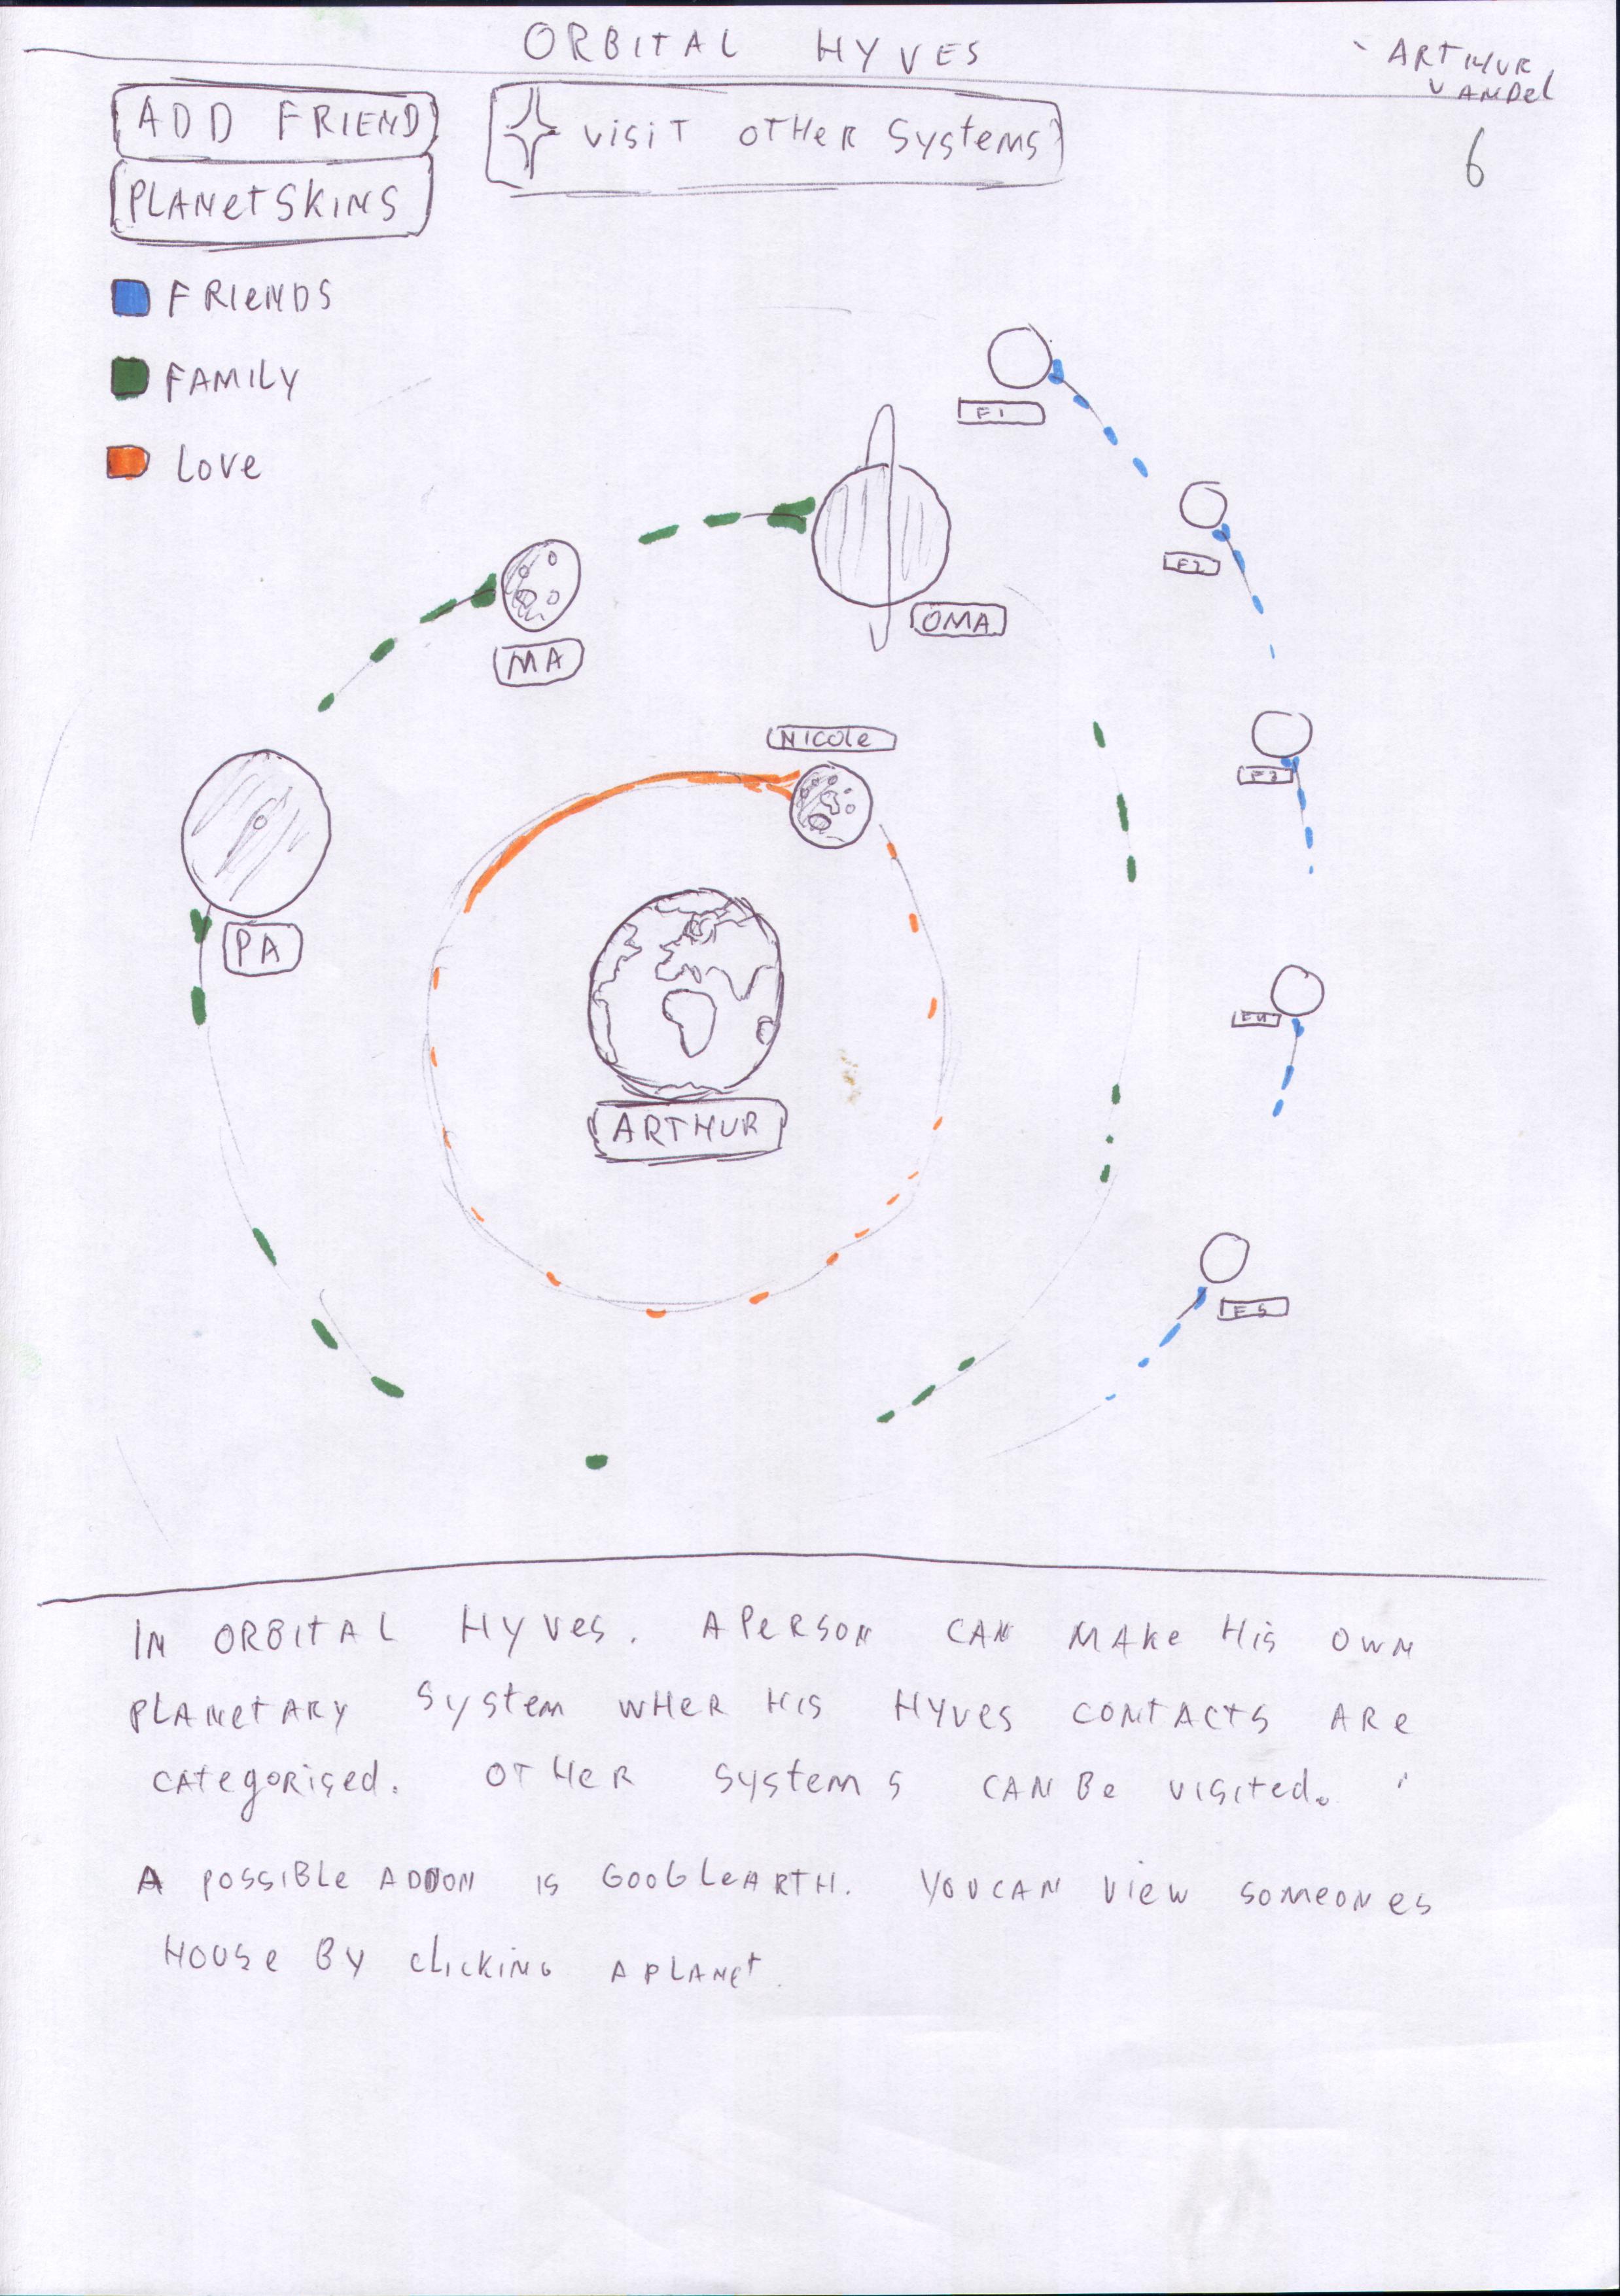 ORBITAL HYVES
ARTHUR
VANDEL
6
ADD FRIEND
VISIT OTHER SYSTEMS
PLANETSKINS
FRIENDS
FAMILY
LOVE
F1
F2
OMA
MA
NICOLE
F3
PA
F4
ARTHUR
F5
IN ORBITAL HYVES. APERSON CAN MAKE HIS OWN
PLANETARY SYSTEM WHER HIS HYVES CONTACTS ARE
CATEGORISED. OTHER SYSTEMS CAN BE VISITED.
A POSSIBLE ADDON IS GOOGLEARTH. YOUCAN VIEW SOMEONES
HOUSE BY CLICKING APLANET.